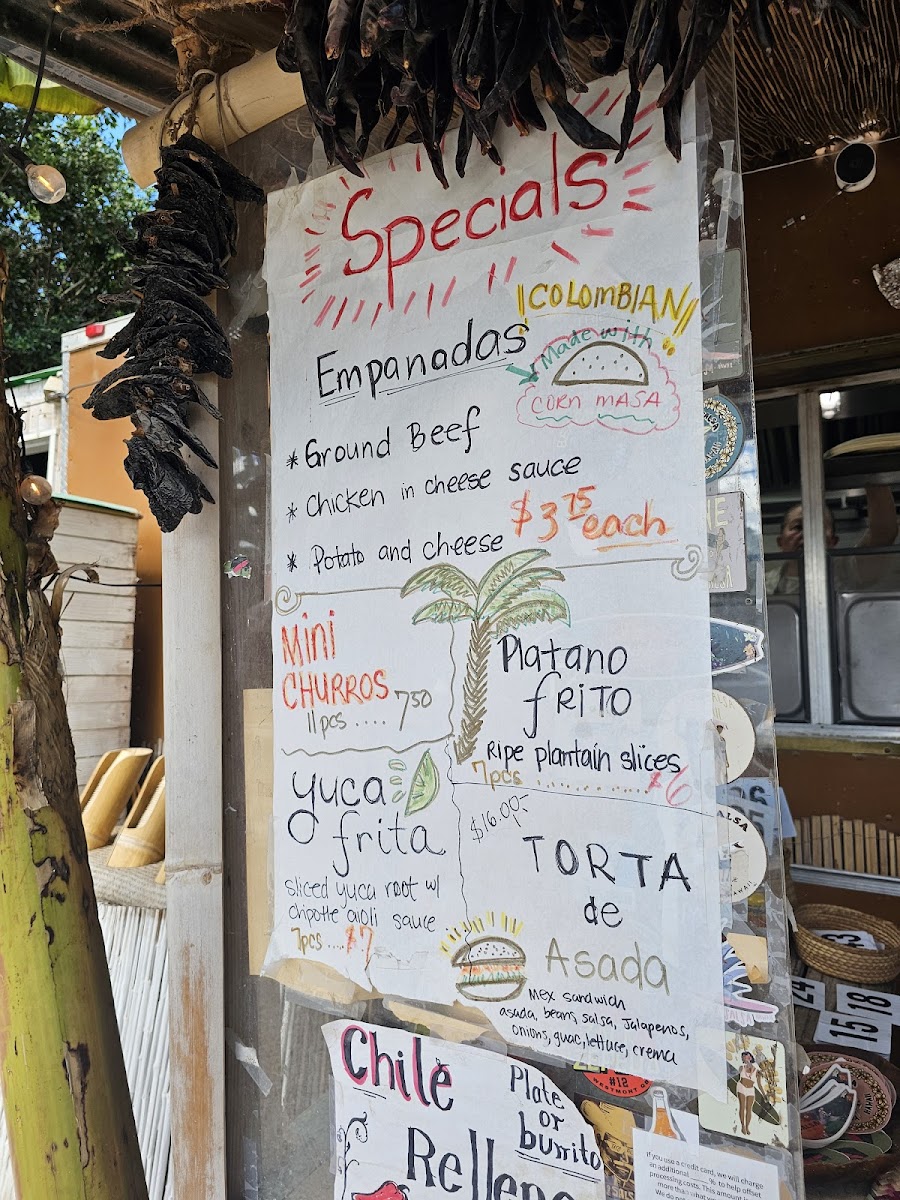 Specials
COLOMBIAN
Empanadas
Made with
CORN MASA
* Ground Beef
* Chicken in cheese sauce
* Potato and cheese
$3.75 each
Mini
CHURROS
11pcs .... 7.50
Platano
fRITO
Ripe plantain slices
7pcs ............ $6
yuca
frita
sliced yuca root w/
chipotle aioli sauce
7pcs .... $7
$16.00
TORTA
de
Asada
Mex sandwich
asada, beans, salsa, Jalapenos,
onions, guac, lettuce, crema
Chile
Plate
or
burrito
#12
If you use a credit card, we will charge
an additional % to help offset
processing costs.
24
18
15